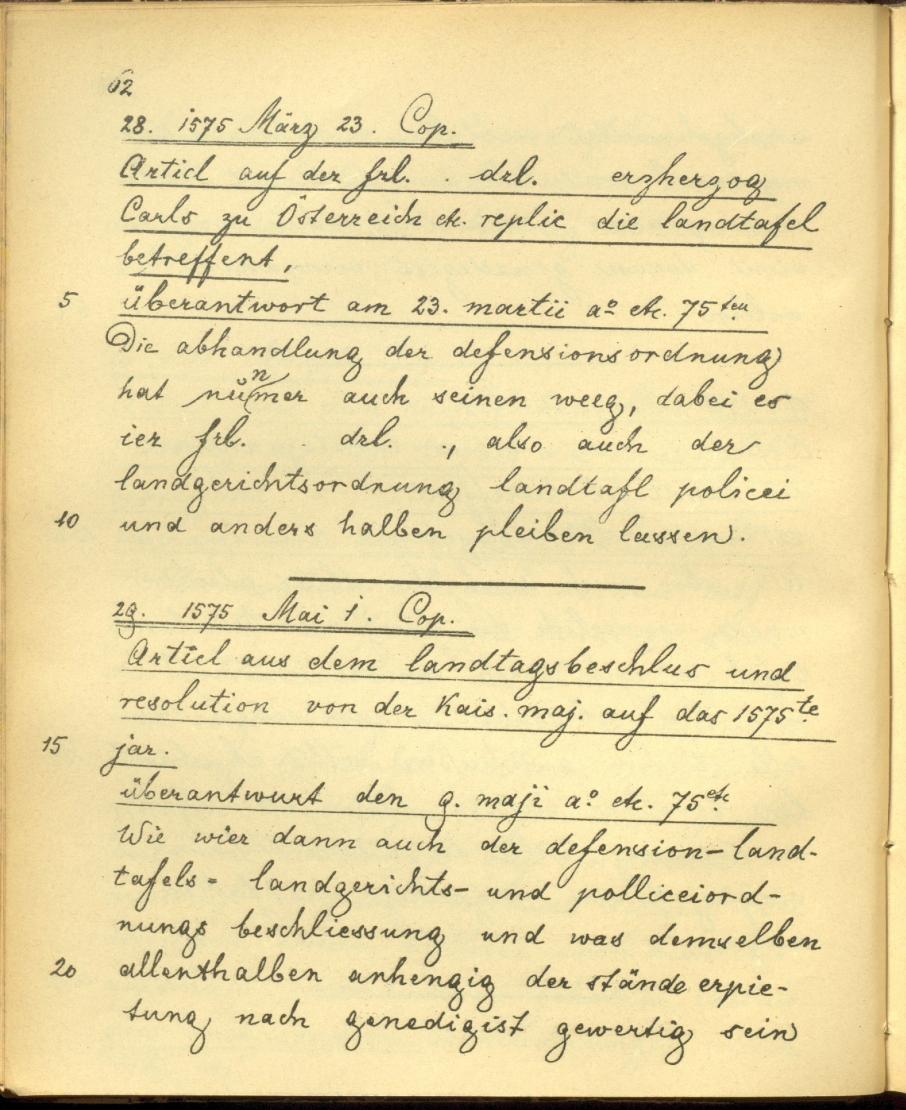 62
28. 1575 März 23. Cop.
Articl auf der frl. . drl. erzherzog
Carls zu Österreich etc. replic die landtafel
betreffent,
5 überantwort am 23. martii aº etc. 75ten
Die abhandlung der defensionsordnung
hat nŭnmer auch seinen weeg, dabei es
ier frl. . drl. ., also auch der
landgerichtsordnung landtafl policei
10 und anders halben pleiben lassen.
29. 1575 Mai 1. Cop.
Articl aus dem landtagsbeschlus und
resolution von der Kais. maj. auf das 1575te
15 jar.
überantwurt den 9. maji aº etc. 75etc
Wie wier dann auch der defension-land-
tafels- landgerichts- und polliceiord-
nungs beschliessung und was demselben
20 allenthalben anhengig der stände erpie-
tung nach genedigist gewertig sein